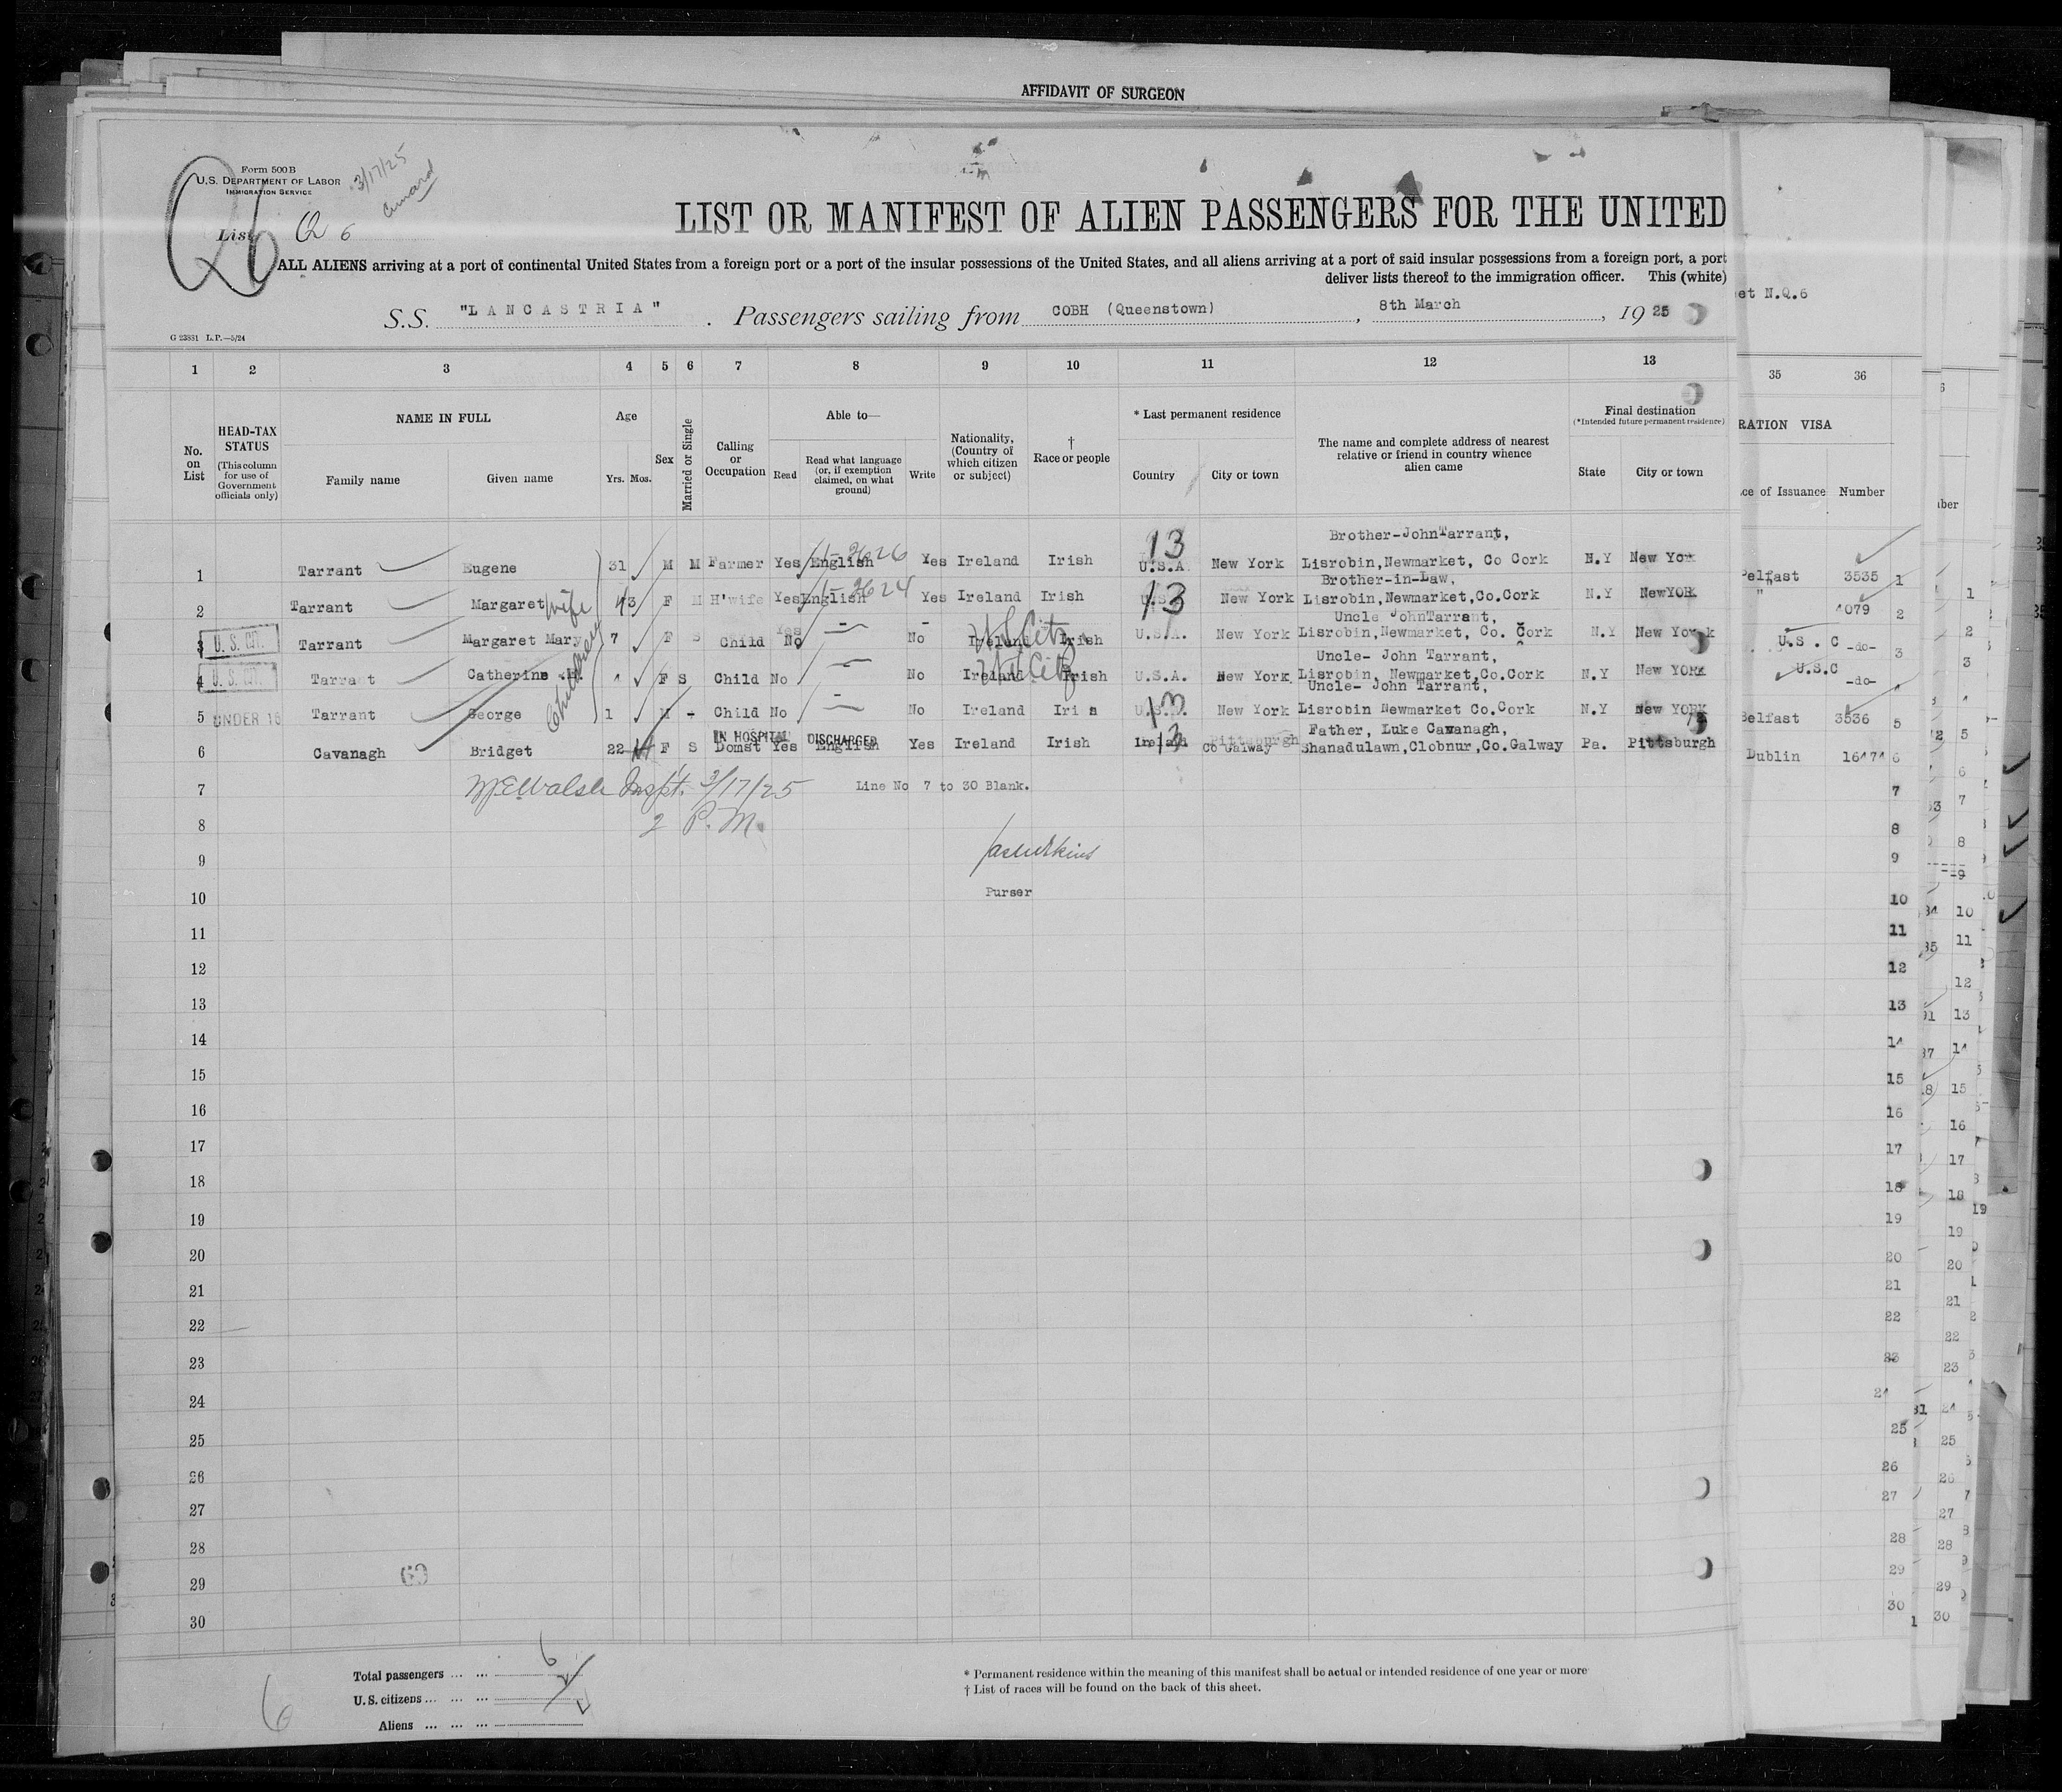 AFFIDAVIT OF SURGEON
Form 500 B
U.S. DEPARTMENT OF LABOR
IMMIGRATION SERVICE
3/17/25
Cunard
Q6
List Q 6
LIST OR MANIFEST OF ALIEN PASSENGERS FOR THE UNITED
ALL ALIENS arriving at a port of continental United States from a foreign port or a port of the insular possessions of the United States, and all aliens arriving at a port of said insular possessions from a foreign port, a port
deliver lists thereof to the immigration officer. This (white)
et N.Q.6
S.S. "LANCASTRIA". Passengers sailing from COBH (Queenstown), 8th March, 1925
G 23881 L.P.—5/24
1 2 3 4 5 6 7 8 9 10 11 12 13 35 36
No. on List
HEAD-TAX STATUS
(This column for use of Government officials only)
NAME IN FULL
Family name Given name
Age
Yrs. Mos.
Sex
Married or Single
Calling or Occupation
Able to—
Read
Read what language (or, if exemption claimed, on what ground)
Write
Nationality, (Country of which citizen or subject)
† Race or people
* Last permanent residence
Country City or town
The name and complete address of nearest relative or friend in country whence alien came
Final destination
(*Intended future permanent residence)
State City or town
RATION VISA
ce of Issuance Number
1 Tarrant Eugene 31 M M Farmer Yes English Yes Ireland Irish 13 U.S.A. New York Brother-JohnTarrant, Lisrobin,Newmarket, Co Cork N.Y New Yor 3535 1
2 Tarrant Margaret wife F M H'wife Yes English Yes Ireland Irish 13 New York Brother-in-Law, Lisrobin,Newmarket,Co.Cork N.Y NewYORK " 4079 2
3 U.S. CIT. Tarrant Margaret Mary 7 F S Child Yes No No Ireland US Citz Irish U.S.A. New York Uncle JohnTarrant, Lisrobin,Newmarket, Co. Cork N.Y New York U.S.C -do- 3
4 U.S. CIT. Tarrant Catherine Children F S Child No No Ireland US Citz Irish U.S.A. New York Uncle- John Tarrant, Lisrobin, Newmarket,Co.Cork N.Y New YORK U.S.C -do- 4
5 UNDER 16 Tarrant George 1 M - Child No No Ireland 13 New York Uncle- John Tarrant, Lisrobin Newmarket Co.Cork N.Y New YORK Belfast 3536 5
6 Cavanagh Bridget 22 F S IN HOSPITAL DISCHARGED Domst Yes English Yes Ireland Irish Ireland 13 Pittsburgh Co Galway Father, Luke Cavanagh, Shanadulawn,Clobnur,Co.Galway Pa. Pittsburgh Dublin 16474 6
7 Walsh Inspt. 3/17/25 Line No 7 to 30 Blank. 7
8 2 P.M. 8
9 9
10 Purser 10
11 11
12 12
13 13
14 14
15 15
16 16
17 17
18 18
19 19
20 20
21 21
22 22
23 23
24 24
25 25
26 26
27 27
28 28
29 29
30 30
6
Total passengers ... ... 6
U.S. citizens ... ... ...
Aliens ... ... ...
* Permanent residence within the meaning of this manifest shall be actual or intended residence of one year or more
† List of races will be found on the back of this sheet.